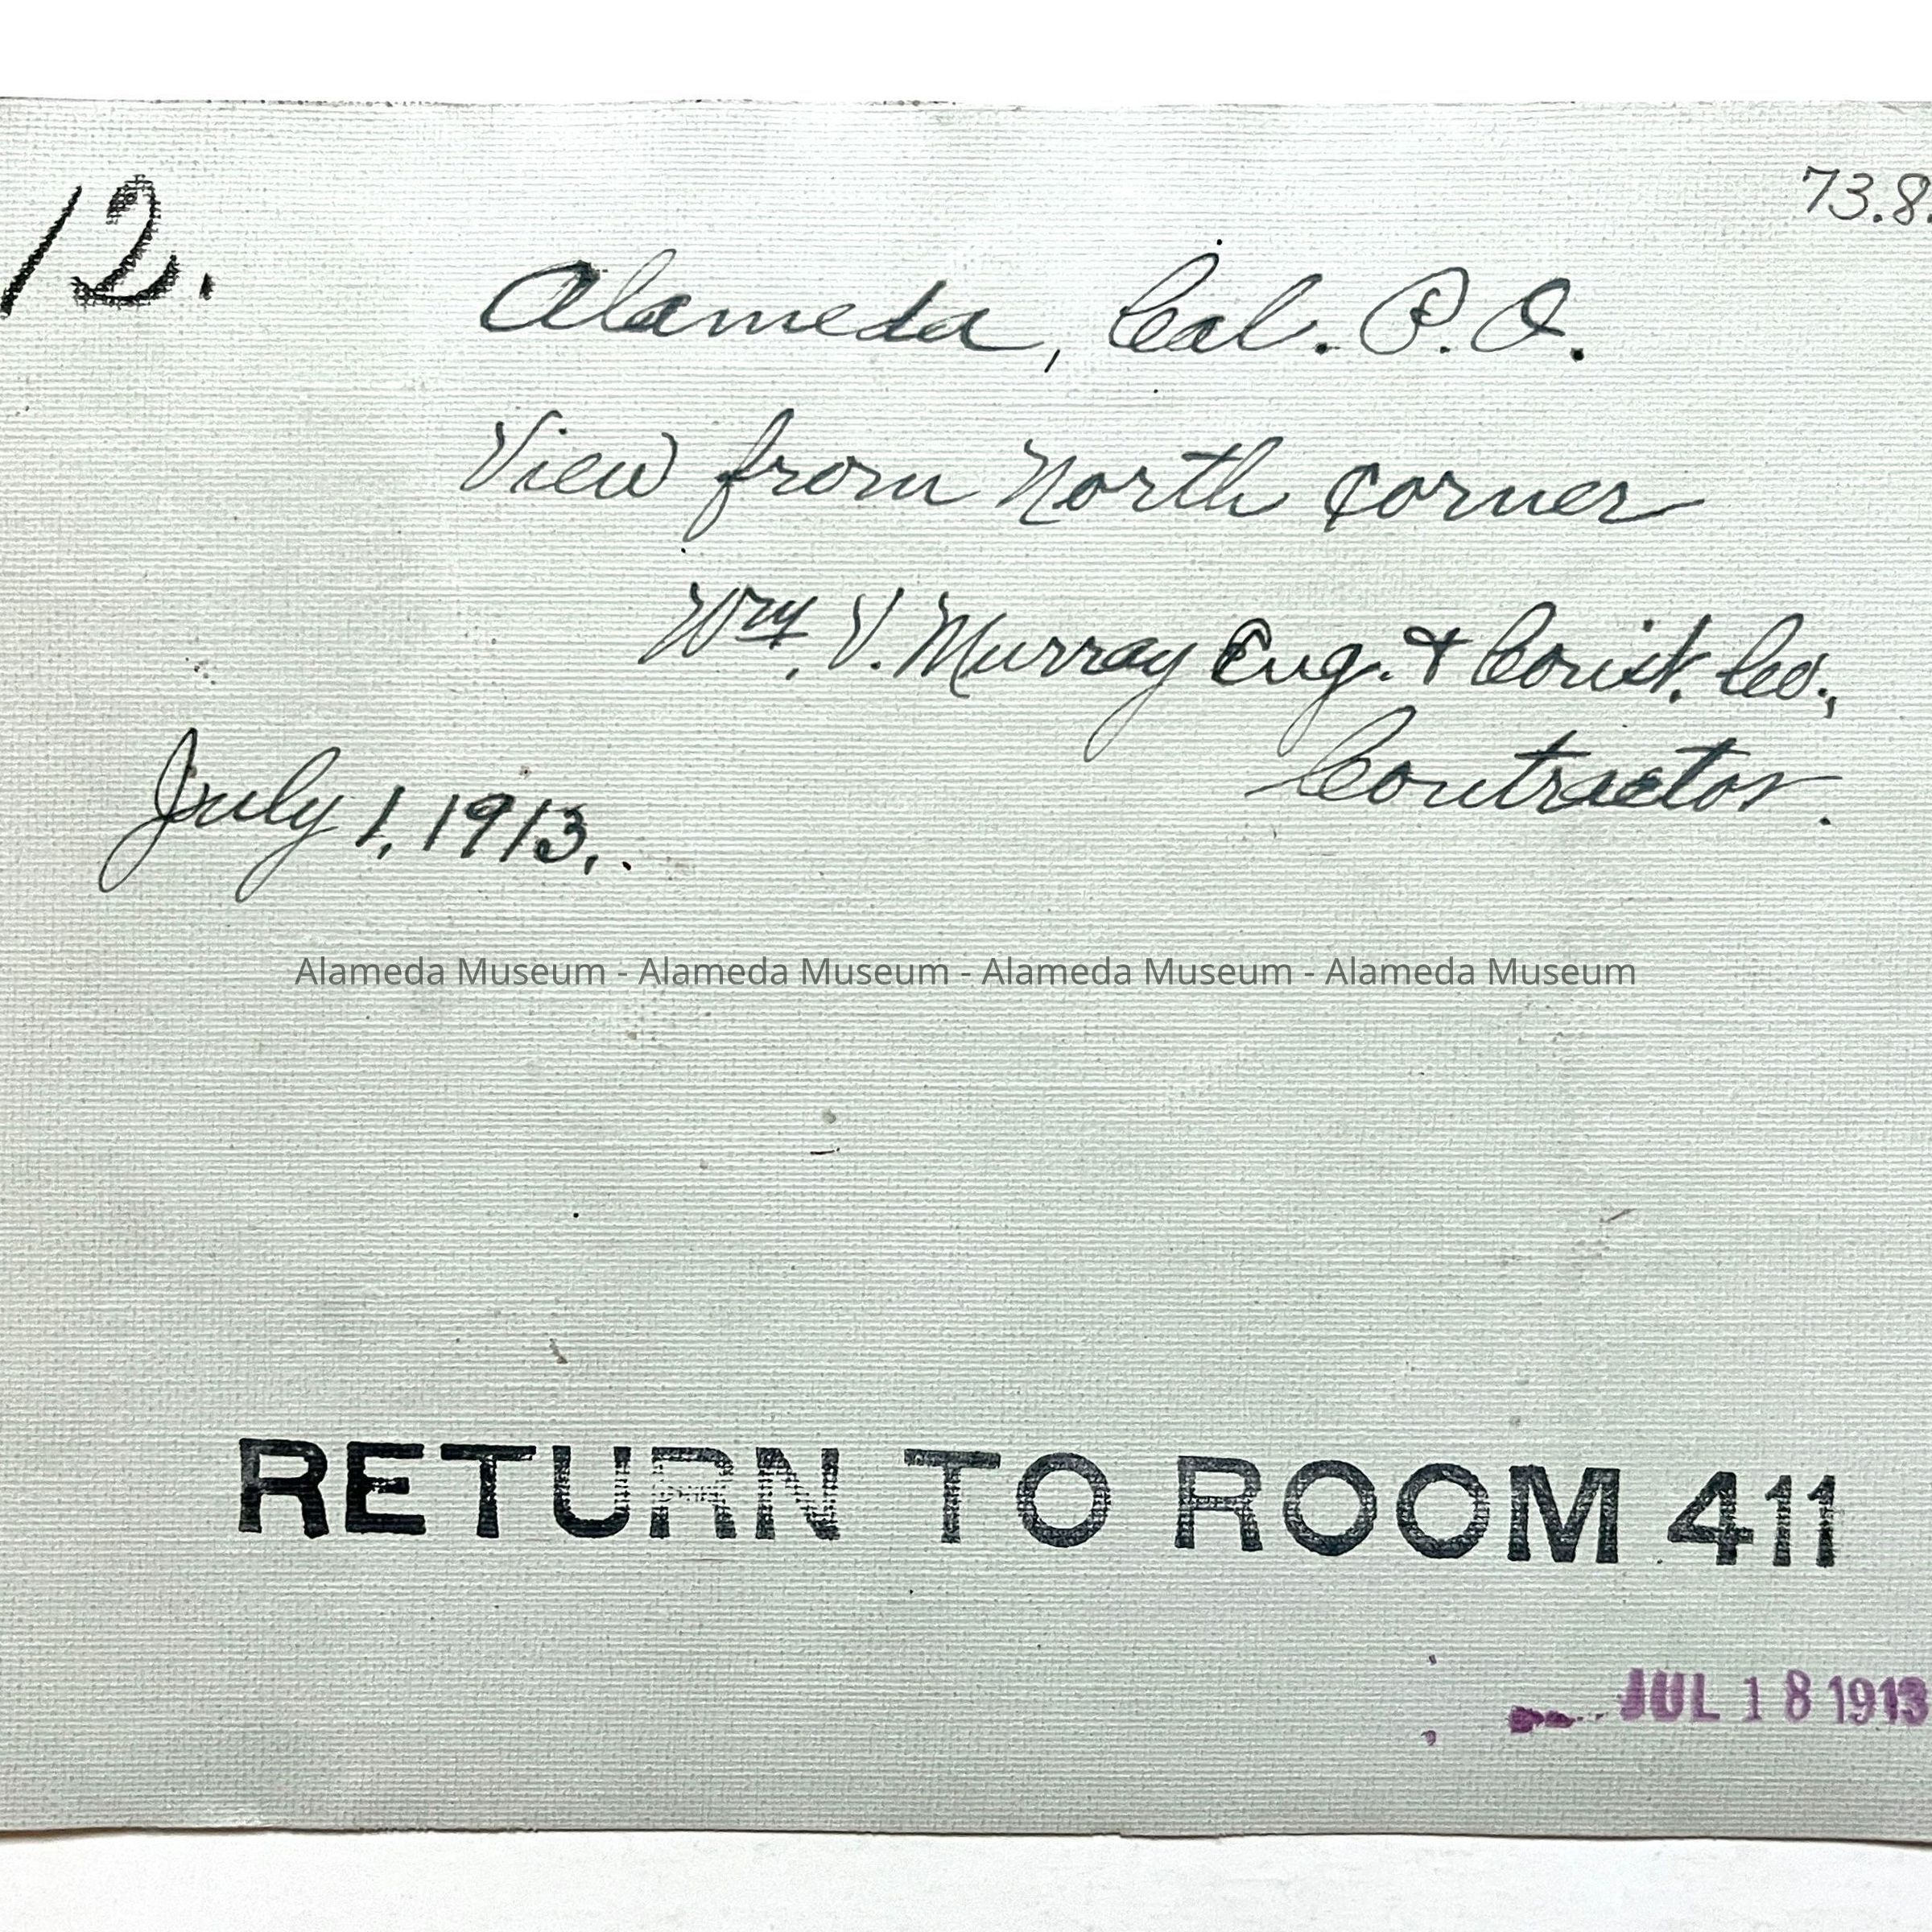 12.
73.8.
Alameda, Cal. P.O.
View from North Corner
Wm. V. Murray Eng. & Const. Co.,
Contractor.
July 1, 1913.
Alameda Museum - Alameda Museum - Alameda Museum - Alameda Museum
RETURN TO ROOM 411
JUL 18 1913